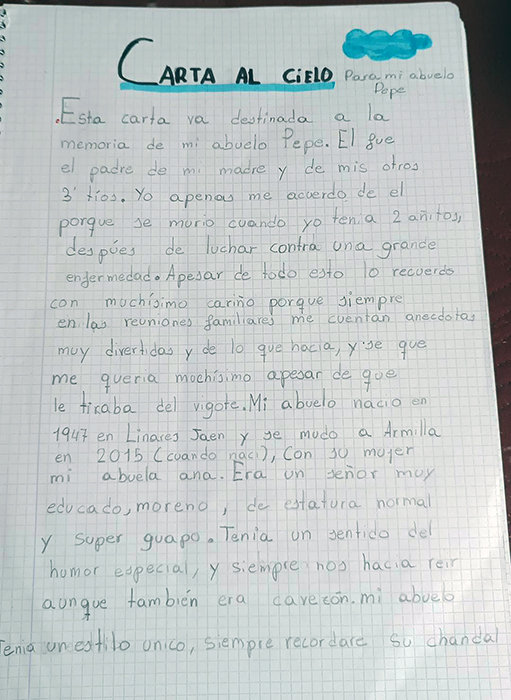 CARTA AL CiELO Para mi abuelo
Pepe
.Esta carta va destinada a la
memoria de mi abuelo Pepe. El fue
el padre de mi madre y de mis otros
3 tíos. Yo apenas me acuerdo de el
porque se murio cuando yo tenia 2 añitos,
despúes de luchar contra una grande
enfermedad. Apesar de todo esto lo recuerdo
con muchísimo cariño porque siempre
en las reuniones familiares me cuentan anecdotas
muy divertidas y de lo que hacia, y se que
me queria muchísimo apesar de que
le tiraba del vigote. Mi abuelo nacio en
1947 en Linares Jaen y se mudo a Armilla
en 2015 (cuando naci), Con su mujer
mi abuela ana. Era un señor muy
educado, moreno, de estatura normal
y super guapo. Tenia un sentido del
humor especial, y siempre nos hacia reir
aunque también era cavezón. mi abuelo
Tenia un estilo unico, siempre recordare su chandal